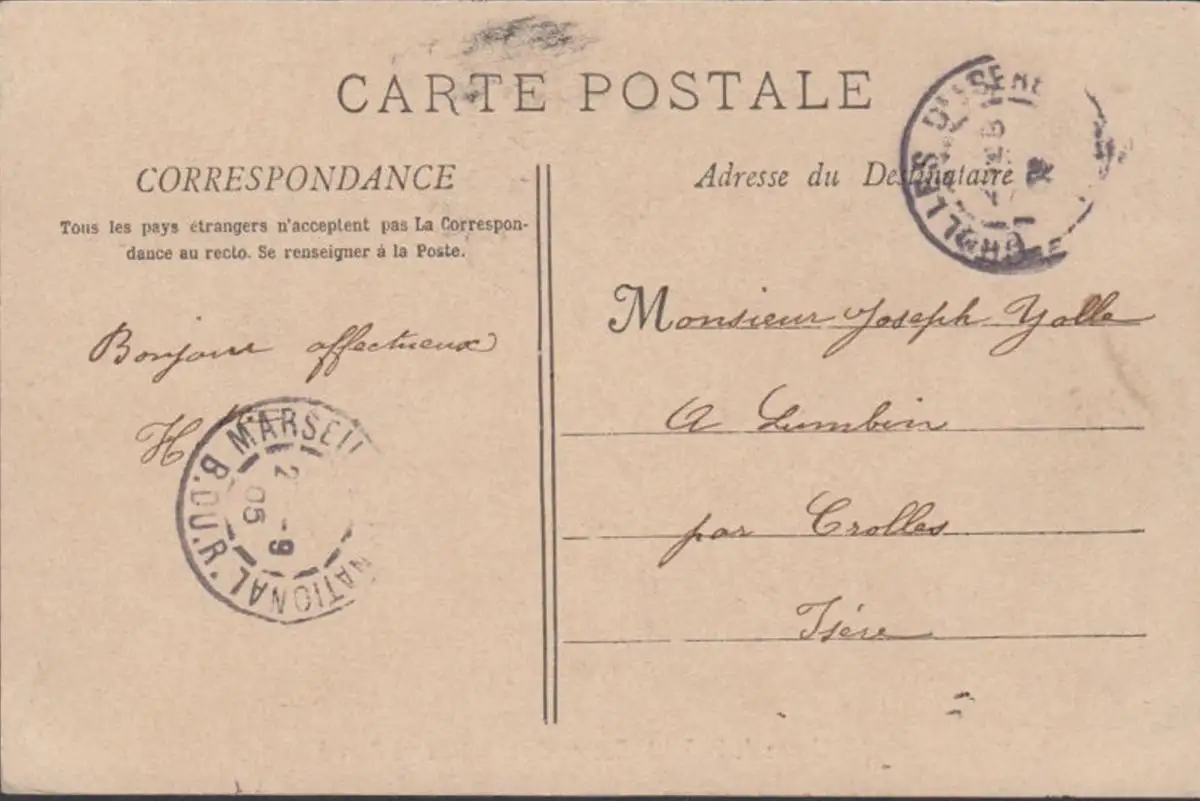 CARTE POSTALE
CORRESPONDANCE
Tous les pays étrangers n'acceptent pas La Correspon-
dance au recto. Se renseigner à la Poste.
Bonjour affectueux
H
MARSEIL
B. DU R.
NATIONAL
2 9
05
Adresse du Destinataire
CROLLES ISERE
Monsieur Joseph Yalle
A Lumbin
par Crolles
Isère